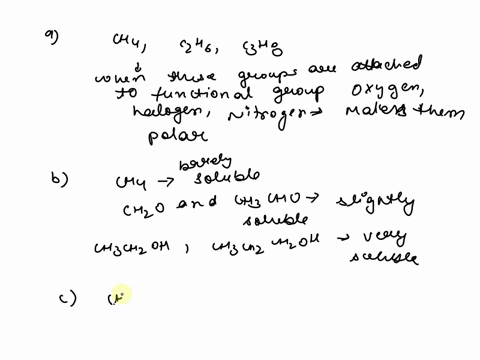 a) CH4, C2H6, C3H8
when these groups are attached
to functional group oxygen,
halogen, Nitrogen → makes them
polar
b) CH4 → barely soluble
CH2O and CH3CHO → slightly
soluble
CH3CH2OH, CH3CH2CH2OH → very
soluble
c)